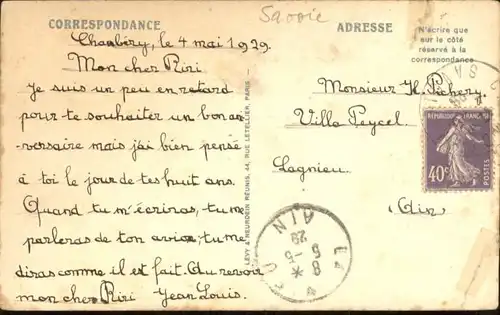 Savoie
CORRESPONDANCE
ADRESSE
N'écrire que
sur le côté
réservé à la
correspondance
Chambéry, le 4 mai 1929.
Mon cher Riri
Je suis un peu en retard
pour te souhaiter un bon anni-
versaire mais j'ai bien pensé
à toi le jour de tes huit ans.
Quand tu m'écriras, tu me
parleras de ton avion, tu me
diras comme il est fait. Au revoir
mon cher Riri Jean Louis.
LÉVY & NEURDEIN RÉUNIS, 44, RUE LETELLIER, PARIS
Monsieur H. Pichery
Villa Peycel
Lagnieu
Ain
RÉPUBLIQUE FRANÇAISE
40c
POSTES
AIN